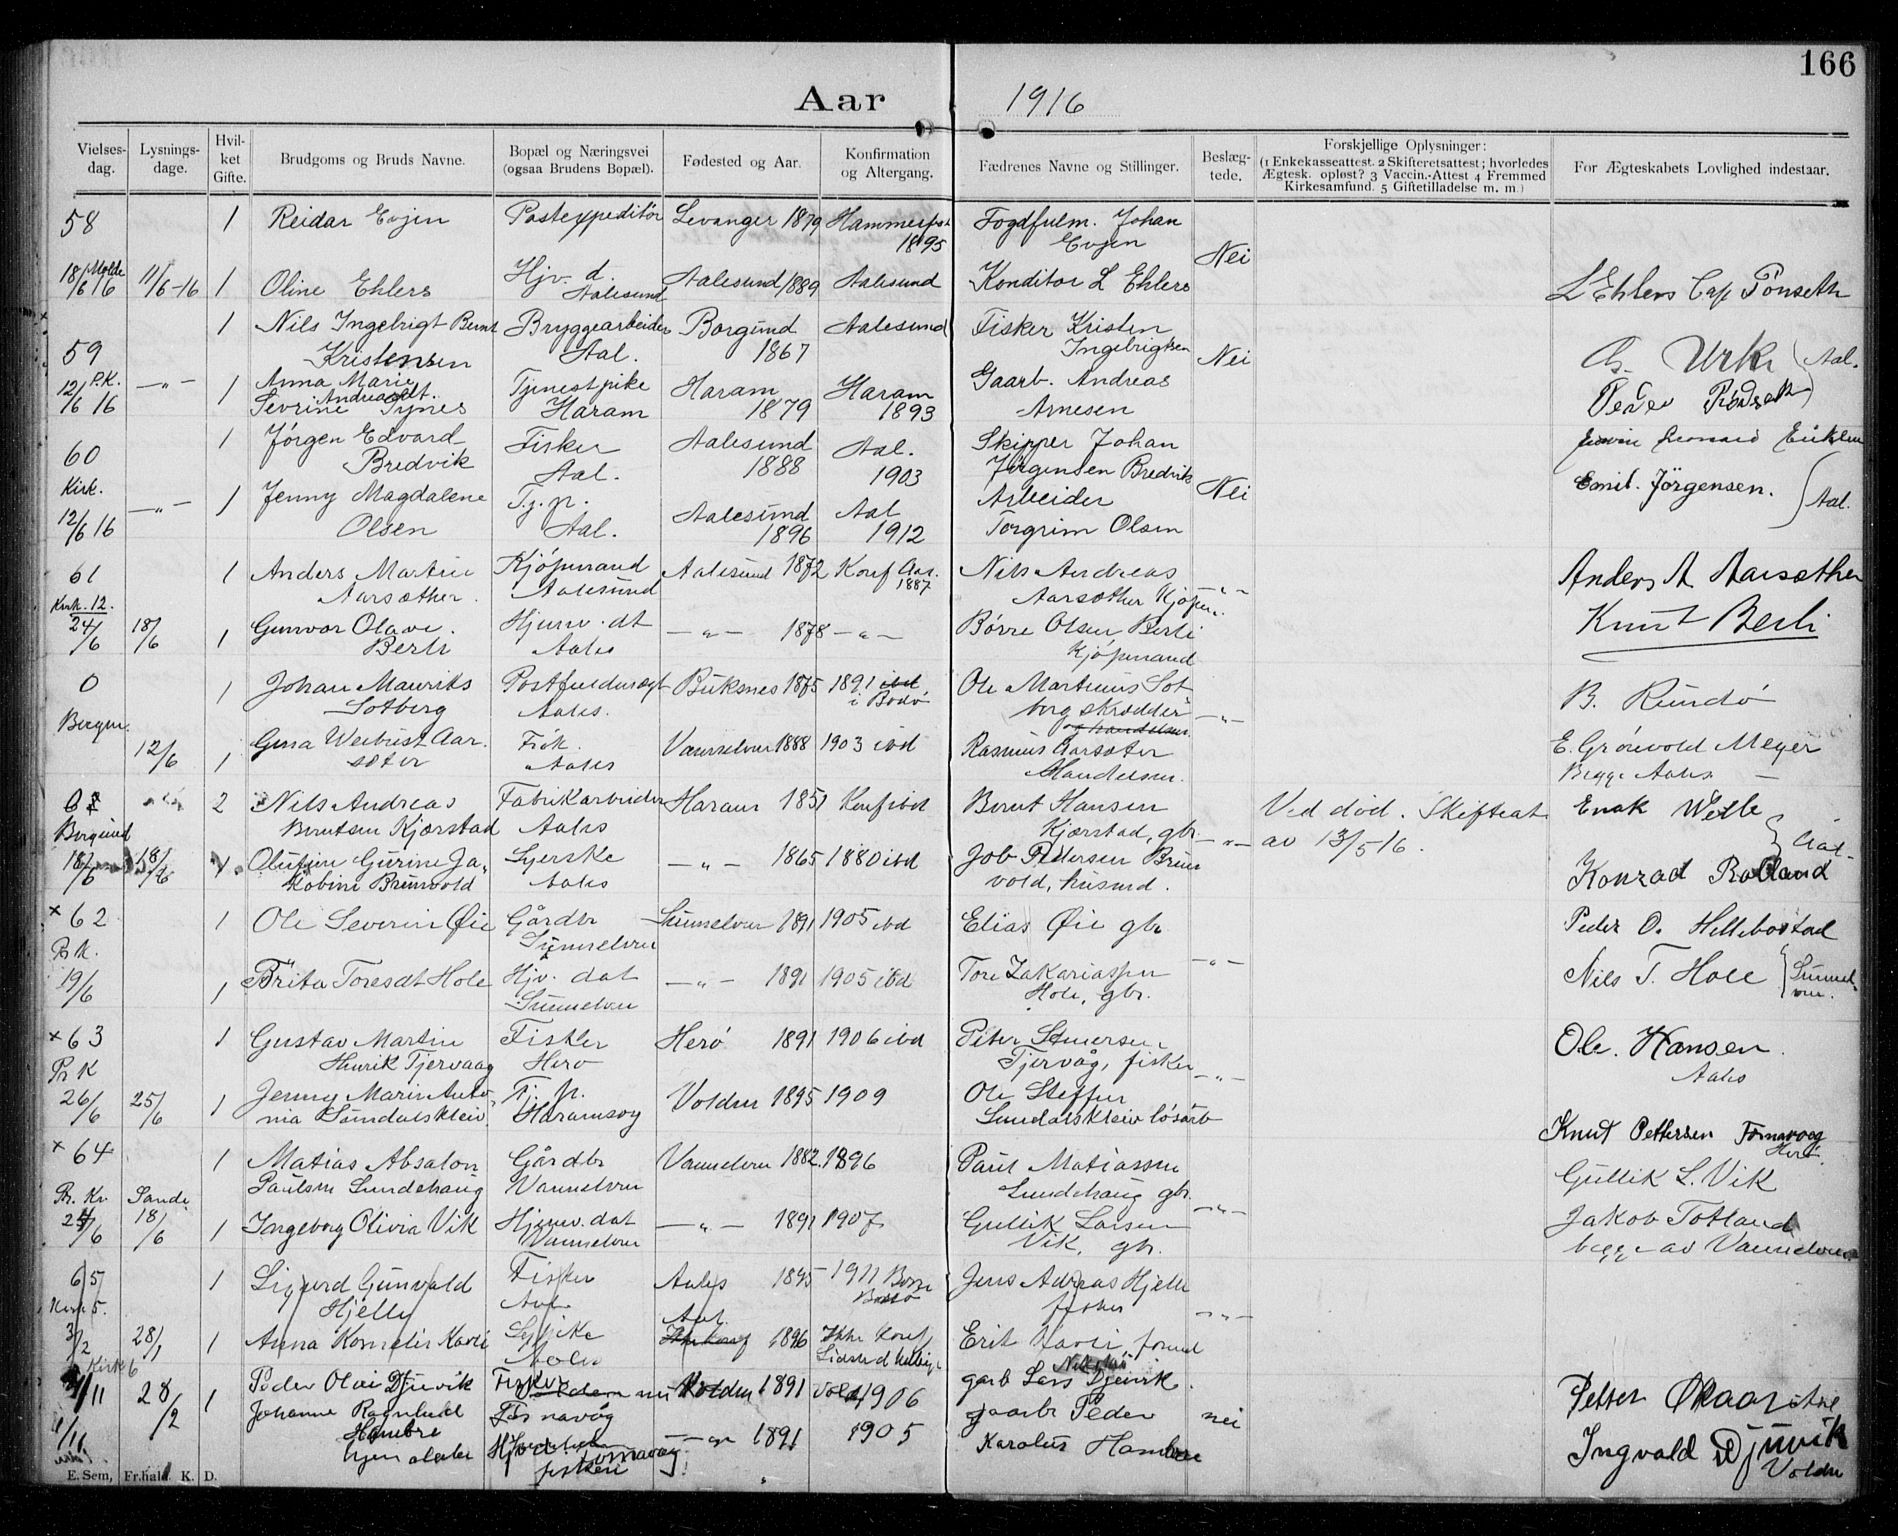 166
Aar 1916
Vielses-dag. Lysnings-dage. Hvil-ket Gifte. Brudgoms og Bruds Navne. Bopæl og Næringsvei (ogsaa Brudens Bopæl). Fødested og Aar. Konfirmation og Altergang. Fædrenes Navne og Stillinger. Beslæg-tede. Forskjellige Oplysninger: (1 Enkekasseattest. 2 Skifteretsattest; hvorledes Ægtesk. opløst? 3 Vaccin.-Attest 4 Fremmed Kirkesamfund. 5 Giftetilladelse m. m.) For Ægteskabets Lovlighed indestaar.
58 1 Reidar Evjen Postexpeditör Levanger 1879 Hammerfest 1895 Fogdfulm. Johan Evjen Nei
18/6 16 Molde 11/6-16 1 Oline Ehlers Hjv. d. Aalesund Aalesund 1889 Aalesund Konditor L Ehlers L Ehlers Cap Tönseth
59 1 Nils Ingebrigt Bernt Kristensen Bryggearbeider Aal. Borgund 1867 Aalesund Fisker Kristen Ingebrigtsen Nei Urke Aal.
P.K. 12/6 16 -"- 1 Anna Marie Sevrine Andreasdt. Synes Tjenestpike Haram Haram 1879 Haram 1893 Gaarb. Andreas Arnesen Peder
60 1 Jørgen Edvard Bredvik Fisker Aal. Aalesund 1888 Aal. 1903 Skipper Johan Jörgensen Bredvik Nei Leonard
Kirk. 12/6 16 -"- 1 Jenny Magdalene Olsen T.j.p. Aal. Aalesund 1896 Aal 1912 Arbeider Torgrim Olsen Emil. Jörgensen. Aal.
61 1 Anders Martin Aarsæther. Kjöpmand Aalesund Aalesund 1872 Konf Aal. 1887 Nils Andreas Aarsæther Kjöpm. -"- Anders A Aarsæther
Kirk. 12. 24/6 18/6 1 Gunvor Olave. Berli Hjemv. dt Aales -"- 1878 -"- Børre Olsen Berli Kjöpmand Knut Berli
0 1 Johan Maurits Sotberg Aales. Buksnes 1875 1891 ibd i Bodö Ole Martinus Sotberg skrædder og handelsm. -"- B. Rundö
Bergen. 12/6 1 Gina Aarsæter Aales 1888 1903 ibd Rasmus Aarsæter Handelsm. E. Grönvold Meyer Begge Aales
2 Nils Andreas Berntsen Kjærstad Fabrikarbeider Aales Haram 1851 Konf ibd Bernt Hansen Kjærstad, gbr. -"- Ved död. Skifteat. av 13/5 16. Enok Welle Aal.
Borgund 18/6 18/6 1 Gurine Jakobine Brunvold Syerske Aales -"- 1865 1880 ibd Job Pedersen Brunvold, husmd. Konzad Rolland
x 62 1 Ole Severin Øie Gårdbr Sunnelven Sunnelven 1891 1905 ibd Elias Øie gbr -"- Peder O. Hellebostad
P.K. 19/6 1 Brita Toresdt Hole Hjv. dat Sunnelven -"- 1891 1905 ibd Tore Zakariassen Hole, gbr. Nils T. Hole Sunnelven.
x 63 1 Gustav Martin Henrik Tjervaag Fisker Herö Herö 1891 1906 ibd Peter Tjervåg, fisker -"- Ole. Hansen. Aales
Pr K 26/6 25/6 1 Jenny Marie Antonia Sundalskleiv Tj. p. Haramsøy Volden 1895 1909 Ole Steffen Sundalskleiv lösarb Knut Pettersen Fosnavaag Herö.
x 64 1 Matias Absalon Paulsen Sundehaug Gårdbr Vannelven Vannelven 1882. 1896 Paul Matiassen Sundehaug gbr. -"- Gullik L. Vik
Pr. Kr. 24/6 Sande 18/6 1 Ingeborg Olivia Vik Hjemv. dat Vannelven -"- 1891 1907 Gullik Larsen Vik, gbr. Jakob Totland begge av Vannelven
65 1 Sigurd Gunvald Hjelle Fisker Aal. Aales 1895 1911 Jens Adreas Hjelle fisker -"-
3/2 28/1 1 Anna Kornelie Aales Aal. 1896 Ikke Konf
Kirk 6 11 28/2 1 Peder Olai Djuvik Fisker Volden 1891 1906 garb Lars Djuvik. Petter
11/11 Johanne Ragnhild Hambre Fosnavåg -"- 1891 1905 gaarb Peder Karolus Hambre nei Ingvald Djuvik Volden
E. Sem, Fr.hald. K. D.